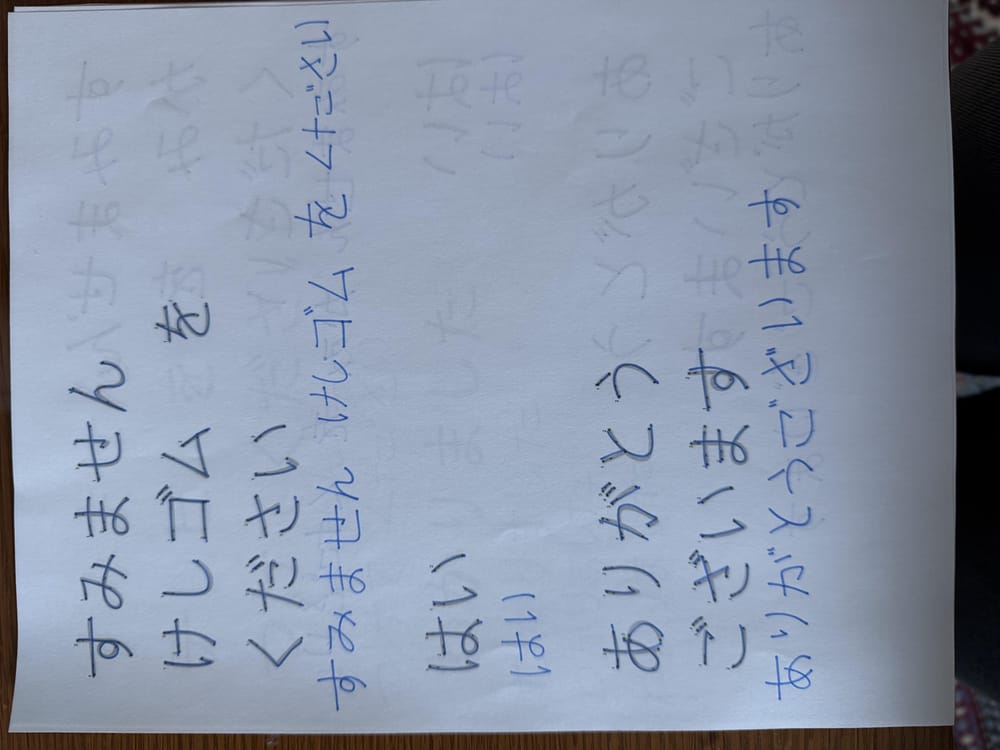 すみません
けしゴム を
ください
すみません けしゴム を ください
はい
はい
ありがとう
ございます
ありがとうございます